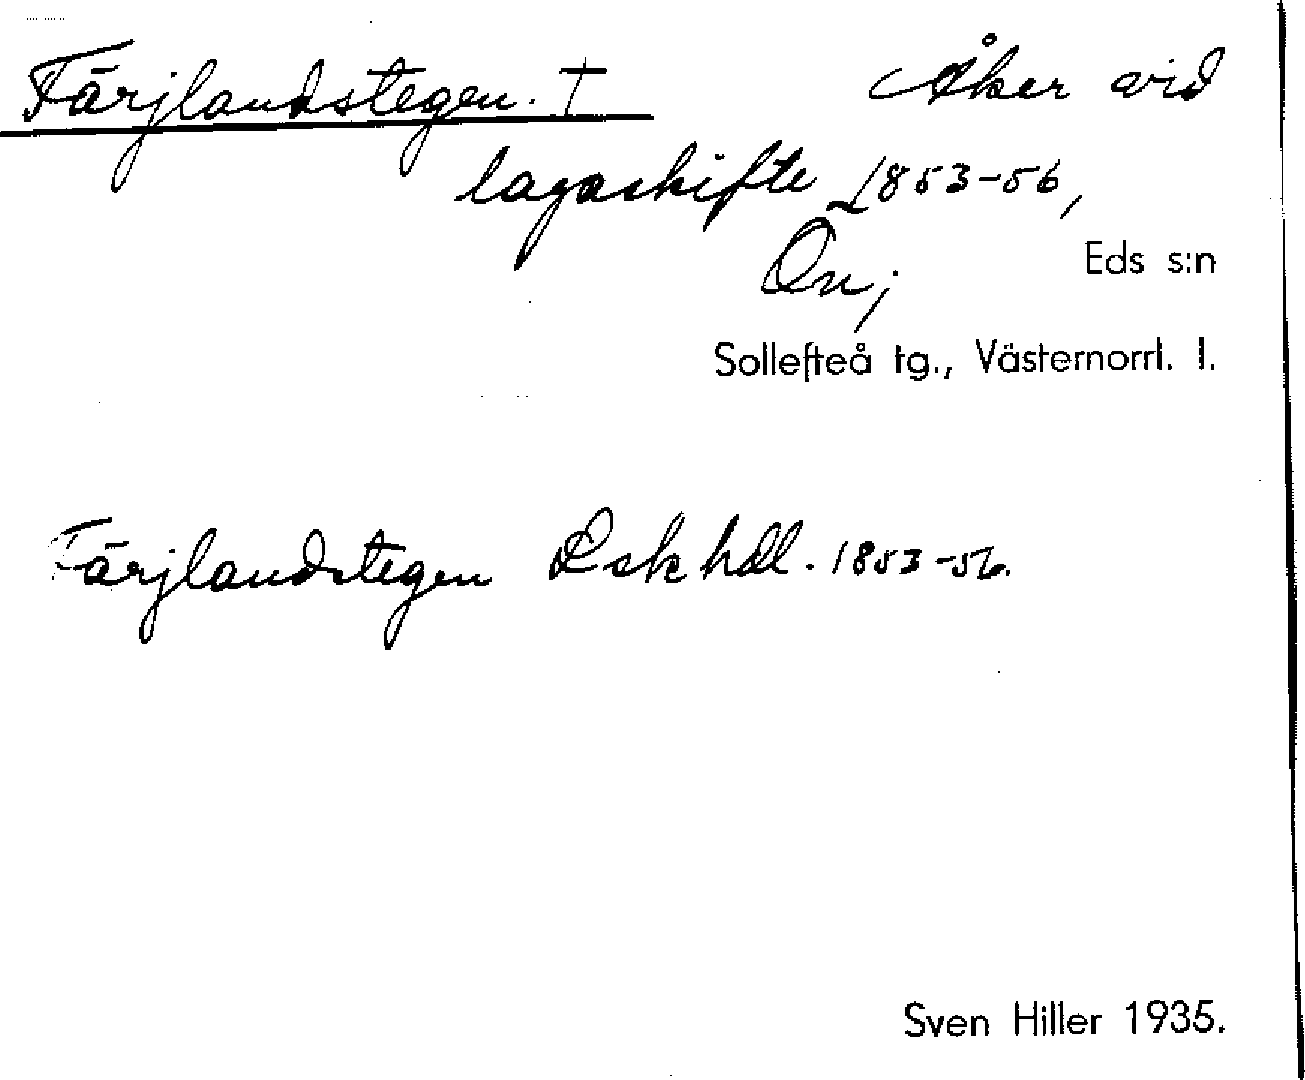 Färjlandstegen. † Åker vid
lagaskifte 1853-56,
Ön; Eds s:n
Sollefteå tg., Västernorrl. l.
Färjlandstegen Lsk hdl. 1853-56.
Sven Hiller 1935.